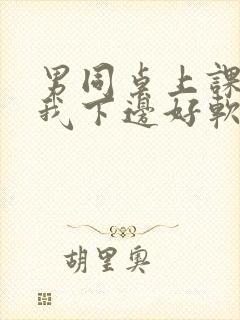 男同桌上課
我下邊好軟
胡里奧